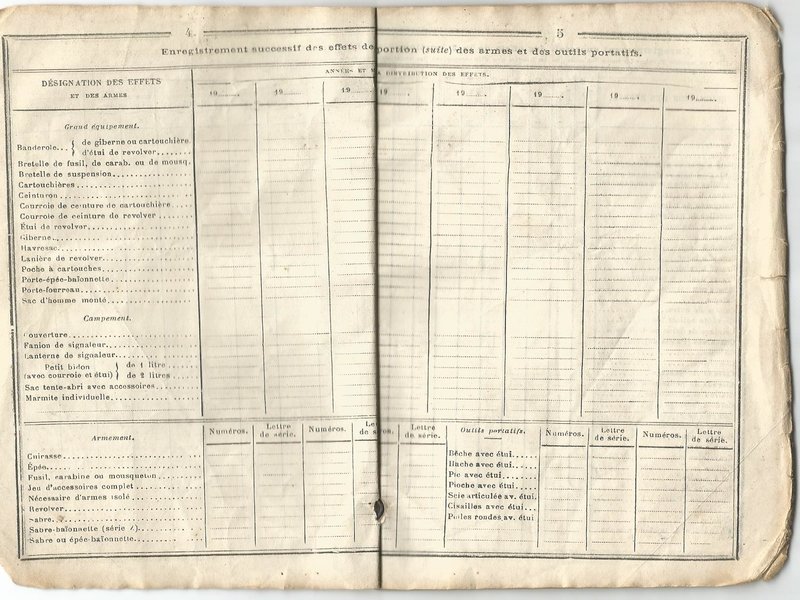 4
5
Enregistrement successif des effets de portion (suite) des armes et des outils portatifs.
DÉSIGNATION DES EFFETS
ET DES ARMES
ANNÉES ET DISTRIBUTION DES EFFETS.
19........ 19........ 19........ 19........ 19........ 19........ 19........ 19........
Grand équipement.
Banderole... { de giberne ou cartouchière
d'étui de revolver.......
Bretelle de fusil, de carab. ou de mousq.
Bretelle de suspension
Cartouchières
Ceinturon
Courroie de ceinture de cartouchière
Courroie de ceinture de revolver
Étui de revolver
Giberne
Havresac
Lanière de revolver
Poche à cartouches
Porte-épée-baïonnette
Porte-fourreau
Sac d'homme monté
Campement.
Couverture
Fanion de signaleur
Lanterne de signaleur
Petit bidon } de 1 litre
(avec courroie et étui) } de 2 litres
Sac tente-abri avec accessoires
Marmite individuelle
Armement.
Numéros. Lettre de série. Numéros. Lettre de série.
Cuirasse
Épée
Fusil, carabine ou mousqueton
Jeu d'accessoires complet
Nécessaire d'armes isolé
Revolver
Sabre
Sabre-baïonnette (série Z)
Sabre ou épée-baïonnette
Outils portatifs.
Numéros. Lettre de série. Numéros. Lettre de série.
Bêche avec étui
Hache avec étui
Pic avec étui
Pioche avec étui
Scie articulée av. étui
Cisailles avec étui
Pelles rondes av. étui